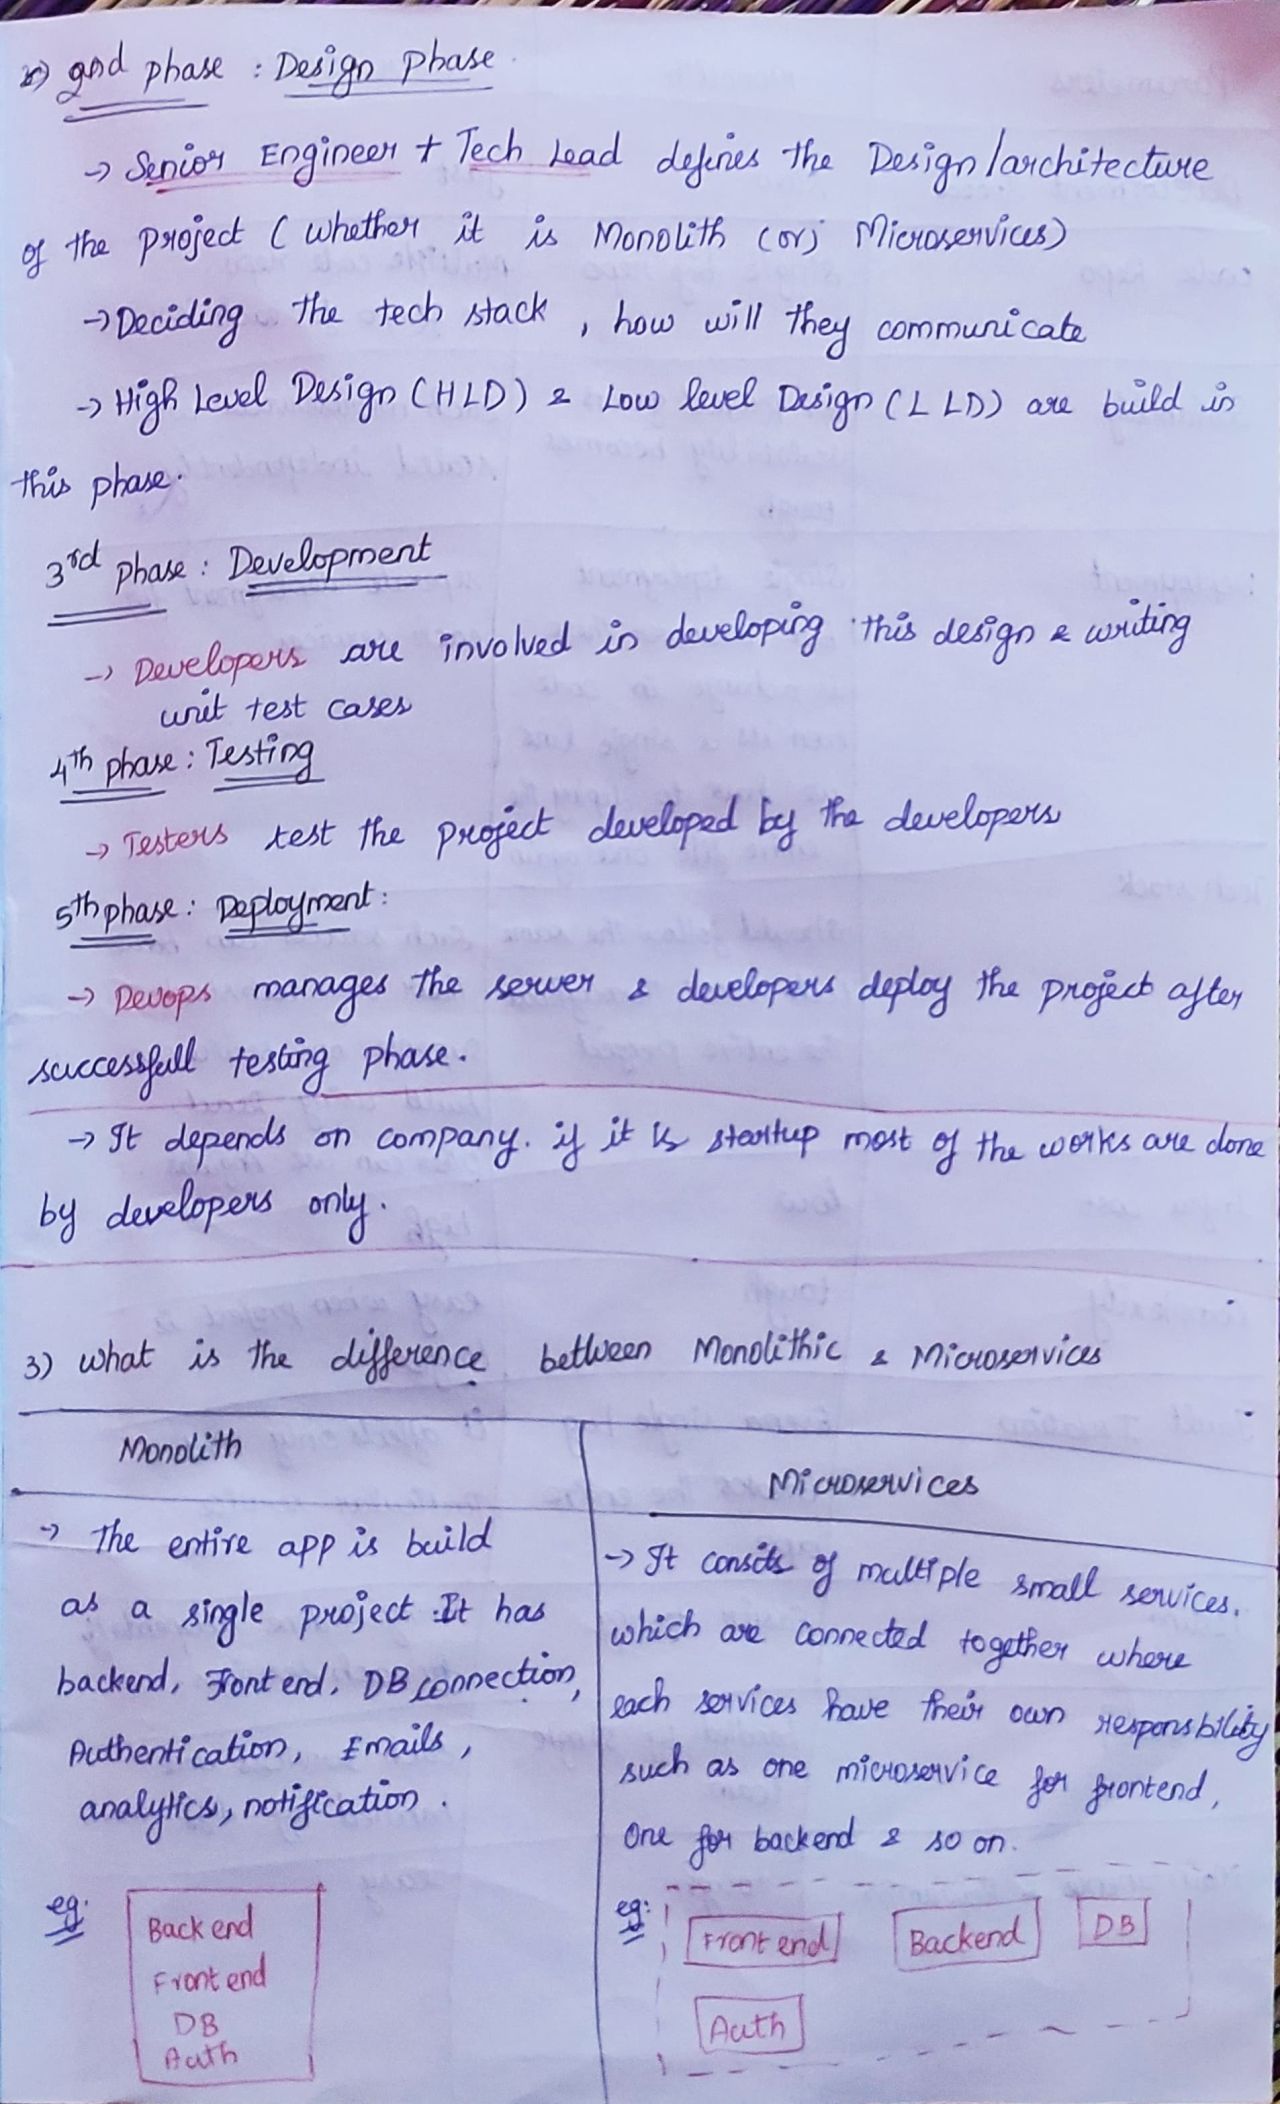 2nd phase : Design Phase
→ Senior Engineer + Tech Lead defines the Design/architecture
of the project ( whether it is Monolith (or) Microservices)
→ Deciding the tech stack , how will they communicate
→ High Level Design (HLD) & Low level Design (LLD) are build in
this phase.
3rd phase : Development
→ Developers are involved in developing this design & writing
unit test cases
4th phase : Testing
→ Testers test the project developed by the developers
5th phase : Deployment :
→ Devops manages the server & developers deploy the project after
successfull testing phase.
→ It depends on company. if it is startup most of the works are done
by developers only.
3) what is the difference between Monolithic & Microservices
Monolith
→ The entire app is build
as a single project. It has
backend, Front end, DB connection,
Authentication, Emails,
analytics, notification.
eg:
Backend
Front end
DB
Auth
Microservices
→ It consits of multiple small services.
which are connected together where
each services have their own responsbility
such as one microservice for frontend,
One for backend & so on.
eg:
Front end Backend DB
Auth